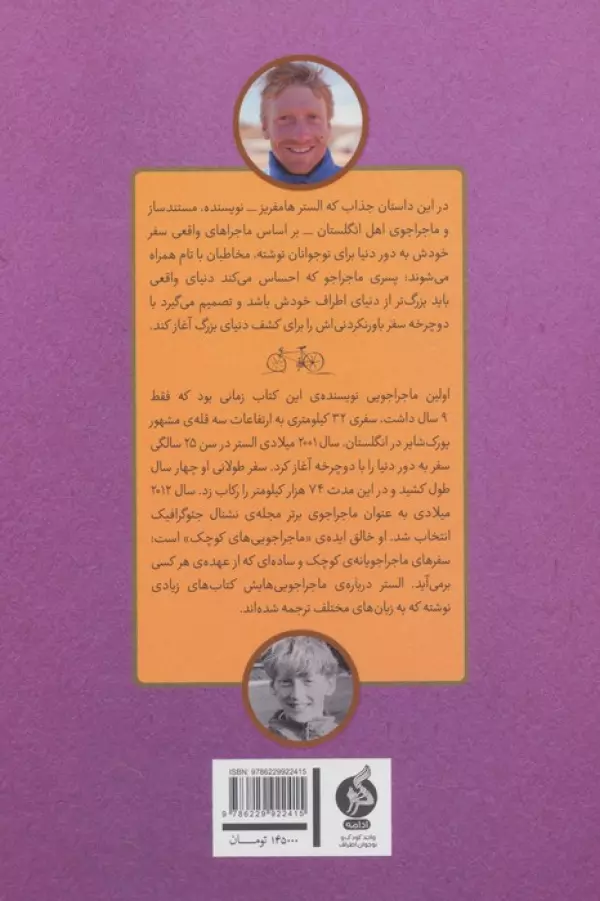 در این داستان جذاب که الستر هامفریز _ نویسنده، مستندساز
و ماجراجوی اهل انگلستان _ بر اساس ماجراهای واقعی سفر
خودش به دور دنیا برای نوجوانان نوشته، مخاطبان با تام همراه
می‌شوند؛ پسری ماجراجو که احساس می‌کند دنیای واقعی
باید بزرگ‌تر از دنیای اطراف خودش باشد و تصمیم می‌گیرد با
دوچرخه سفر باورنکردنی‌اش را برای کشف دنیای بزرگ آغاز کند.
اولین ماجراجویی نویسنده‌ی این کتاب زمانی بود که فقط
۹ سال داشت، سفری ۳۲ کیلومتری به ارتفاعات سه قله‌ی مشهور
یورک‌شایر در انگلستان. سال ۲۰۰۱ میلادی الستر در سن ۲۵ سالگی
سفر به دور دنیا را با دوچرخه آغاز کرد. سفر طولانی او چهار سال
طول کشید و در این مدت ۷۴ هزار کیلومتر را رکاب زد. سال ۲۰۱۲
میلادی به عنوان ماجراجوی برتر مجله‌ی نشنال جئوگرافیک
انتخاب شد. او خالق ایده‌ی «ماجراجویی‌های کوچک» است؛
سفرهای ماجراجویانه‌ی کوچک و ساده‌ای که از عهده‌ی هر کسی
برمی‌آید. الستر درباره‌ی ماجراجویی‌هایش کتاب‌های زیادی
نوشته که به زبان‌های مختلف ترجمه شده‌اند.
ISBN: 9786229922415
9 786229 922415
۱۴۵۰۰۰ تومـــان
ادامه
واحد کودک و
نوجوان اطراف